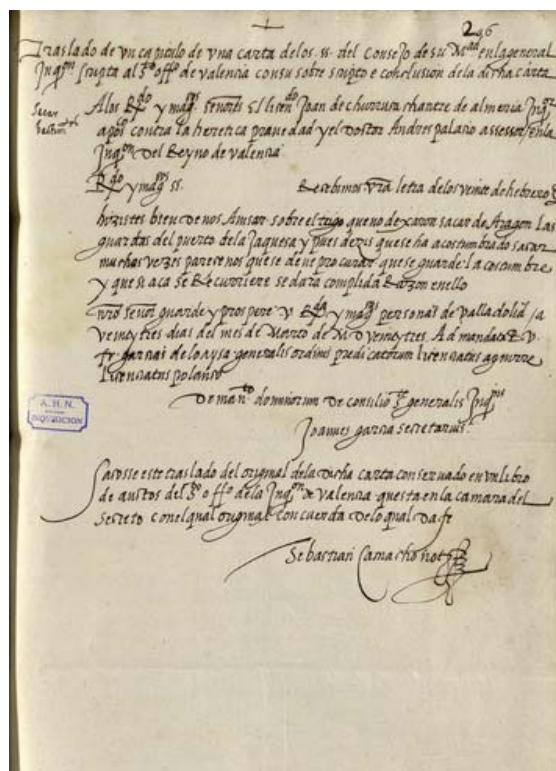 296
Traslado de vn capitulo de vna carta de los .ss. del Consejo de su Mad. en la general
Inqon scripta al sto offo de valencia con su sobre scripto e conclusion de la dicha carta
Sacar
A los Rdo y magcos señores El licendo Joan de churruca chantre de almeria Inqor
apco contra la heretica prauedad y el Doctor Andres palacio assessor en la
Inqon Del Reyno de valencia
Rdo y magcos ss. Recebimos vra letra de los veinte de hebrero
hezistes bien de nos Auisar sobre el trigo que no dexaron sacar de Aragon Las
guardas del puerto de la Jaquesa y pues dezis que se ha acostumbrado sacar
muchas vezes parece nos que se deue procurar que se guarde la costumbre
y que si aca se Recurriere se dara complida Razon en ello
nro señor guarde y prospere v. Rda y magcas personas de valladolid /a
veinte y tres dias del mes de Março de M D veinte y tres. Ad mandata E. v.
fr. garcias de loaysa generalis ordinis predicatorum licenciatus aguirre
licenciatus polanco
De manto dominorum De consilio ste generalis Inqnis
Joannes garcia secretarius
A. H. N.
INQUISICION
Sacosse este traslado del original de la dicha carta conseruado en vn libro
de auctos del sto offo de la Inqon de valencia questa en la camara del
secreto con el qual original concuerda De lo qual Da fe
Sebastian Camacho noto